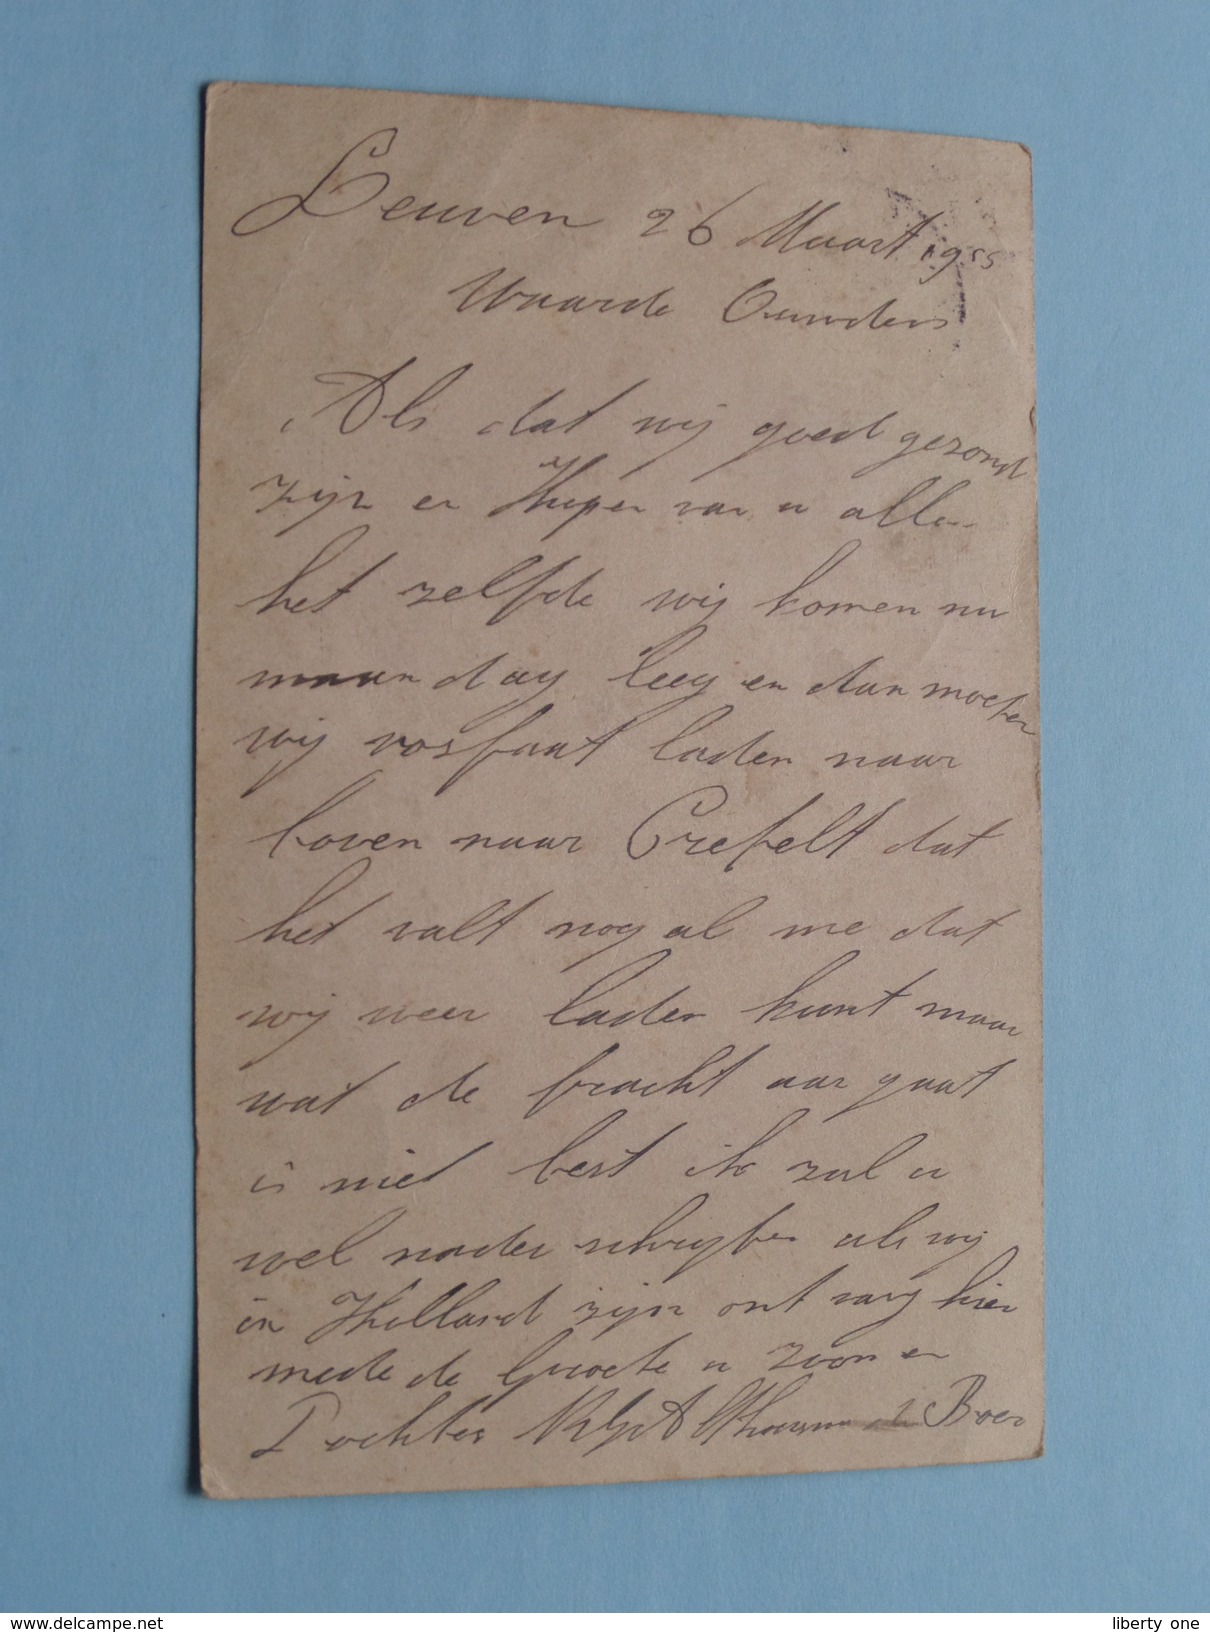 Leuven 26 Maart 19
Waarde Ouwders
Als dat wij goed gezond
zijn en Hopen van u allen
het zelfde wij komen nu
maandag leeg en dan moeten
wij vosfaat laden naar
boven naar Crefelt dat
het valt nog al me dat
wij weer laden kunt maar
wat de fracht aar gaat
is niet best ik zal u
wel nader schrijfen als wij
in Holland zijn ont vang hier
mede de Groete u zoon en
Dochter de Boer
www.delcampe.net
liberty one